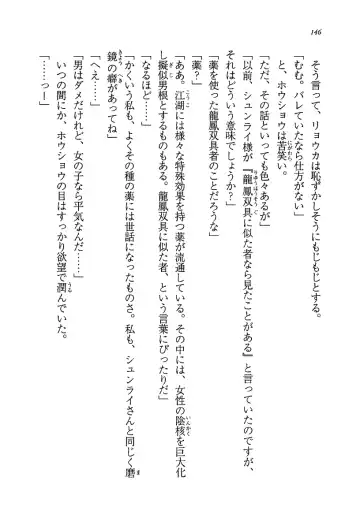 146
そう言って、リョウカは恥ずかしそうにもじもじとする。
「むむ。バレていたなら仕方がない」
にわかに、ホウショウは苦笑い。
「ただ、その話といっても色々あるが」
「以前、シュンライ様が『龍鳳双具に似た者なら見たことがある』と言っていたのですが、
それはどういう意味でしょうか？」
「薬を使った龍鳳双具者のことだろうな」
「薬？」
「ああ。江湖には様々な特殊効果を持つ薬が流通している。その中には、女性の陰核を巨大化
し擬似男根とするものもある。龍鳳双具に似た者、という言葉にぴったりだ」
「なるほど……」
「かくいう私も、よくその種の薬には世話になったものさ。私も、シュンライさんと同じく磨
鏡の癖があってね」
「へえ……」
「男はダメだけれど、女の子なら平気なんだ……」
「……っ―」
いつの間にか、ホウショウの目はすっかり欲望で潤んでいた。